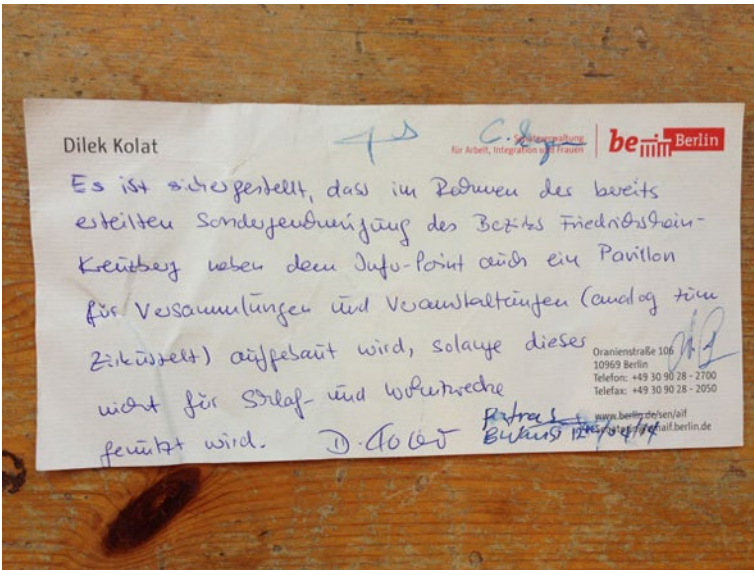 Dilek Kolat
Senatsverwaltung
für Arbeit, Integration und Frauen
be Berlin
Es ist sichergestellt, dass im Rahmen der bereits
erteilten Sondergenehmigung des Bezirks Friedrichshain-
Kreuzberg neben dem Info-Point auch ein Pavillon
für Versammlungen und Veranstaltungen (analog zum
Zirkuszelt) aufgebaut wird, solange dieser
nicht für Schlaf- und Wohnzwecke
genutzt wird. D. Kolat
Oranienstraße 106
10969 Berlin
Telefon: +49 30 90 28 - 2700
Telefax: +49 30 90 28 - 2050
www.berlin.de/sen/aif